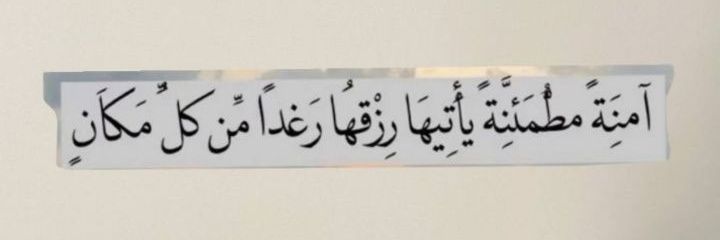 آمنَِةً مطْمَئنَِّةً يأْتِيهَا رِزْقهُا رَغداً مِّن كلِّ مَكاَنٍ